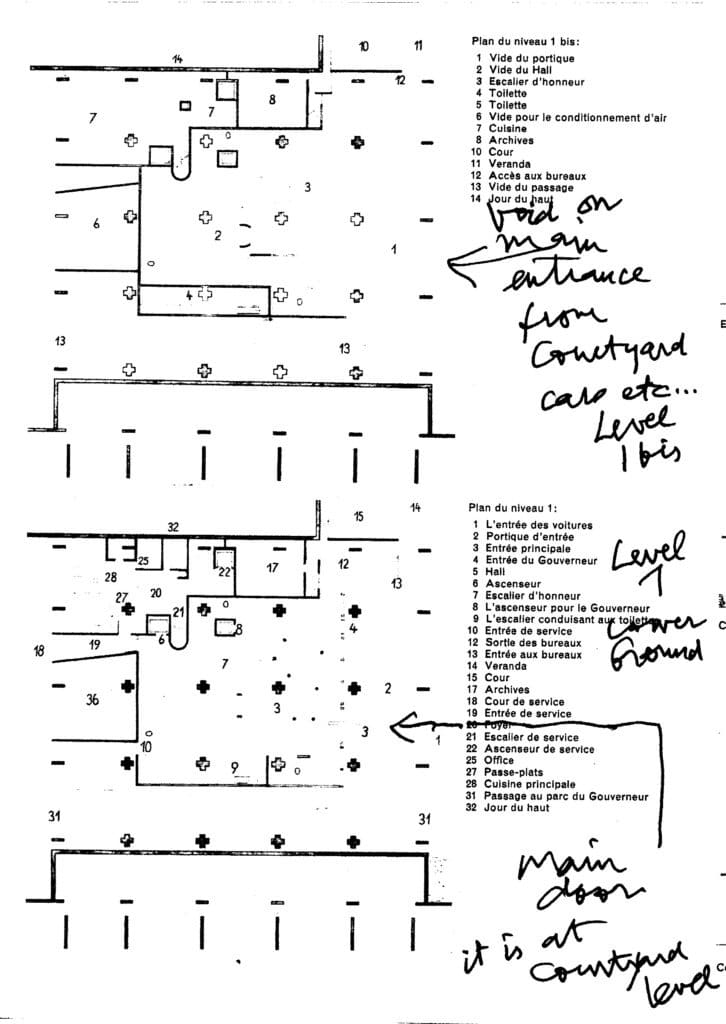 14
10
11
12
7
7
8
3
6
2
1
4
13
13
Plan du niveau 1 bis:
1 Vide du portique
2 Vide du Hall
3 Escalier d'honneur
4 Toilette
5 Toilette
6 Vide pour le conditionnement d'air
7 Cuisine
8 Archives
10 Cour
11 Veranda
12 Accès aux bureaux
13 Vide du passage
14 Jour du haut
void on
main
entrance
from
Courtyard
cars etc...
Level
1 bis
32
15
14
25
22
17
12
28
13
20
27
21
8
4
6
19
18
7
36
2
3
3
1
10
9
31
31
Plan du niveau 1:
1 L'entrée des voitures
2 Portique d'entrée
3 Entrée principale
4 Entrée du Gouverneur
5 Hall
6 Ascenseur
7 Escalier d'honneur
8 L'ascenseur pour le Gouverneur
9 L'escalier conduisant aux toilettes
10 Entrée de service
12 Sortie des bureaux
13 Entrée aux bureaux
14 Veranda
15 Cour
17 Archives
18 Cour de service
19 Entrée de service
20 Foyer
21 Escalier de service
22 Ascenseur de service
25 Office
27 Passe-plats
28 Cuisine principale
31 Passage au parc du Gouverneur
32 Jour du haut
Level
1
Lower
Ground
main
door
it is at
Courtyard
level